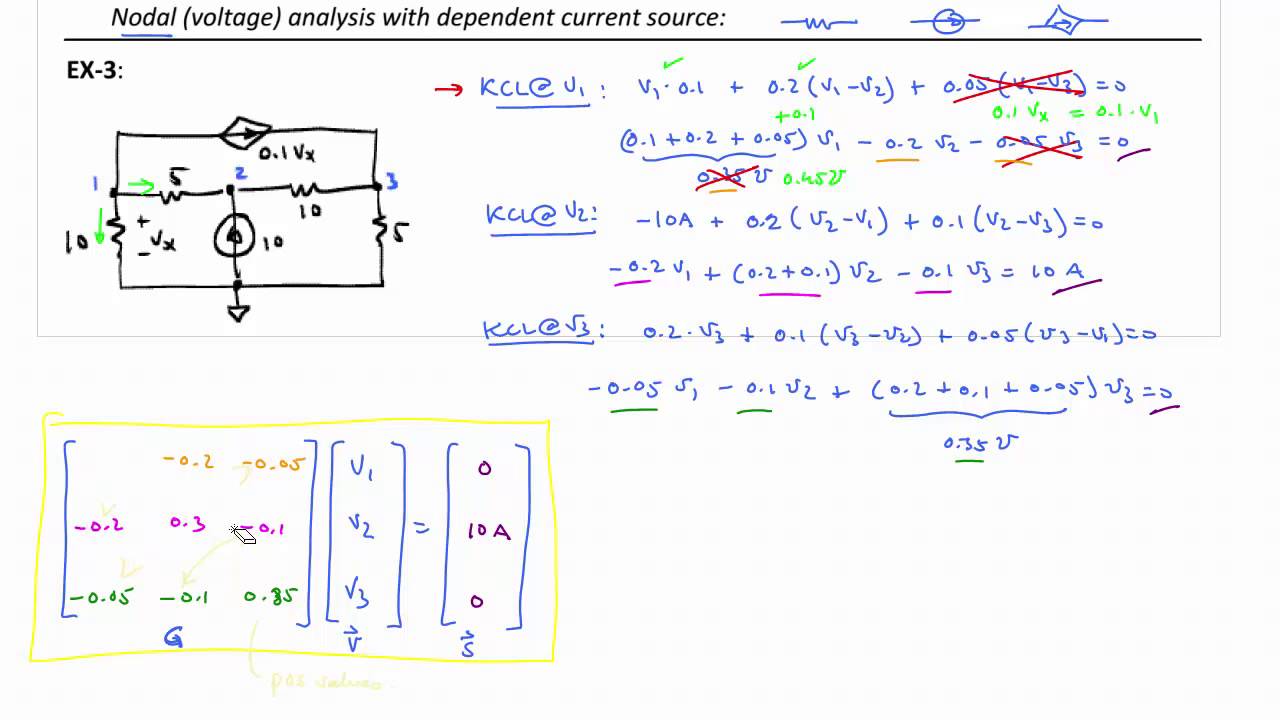 Nodal (voltage) analysis with dependent current source:
EX-3:
0.1 Vx
1
5
2
10
3
10
+
Vx
-
10
5
→ KCL@ V1 : V1 · 0.1 + 0.2 (V1 - V2) + 0.05 (V1 - V3) = 0
+0.1
0.1 Vx = 0.1 · V1
(0.1 + 0.2 + 0.05) V1 - 0.2 V2 - 0.05 V3 = 0
0.35 ℧ 0.45℧
KCL@ V2: -10A + 0.2 (V2 - V1) + 0.1 (V2 - V3) = 0
-0.2 V1 + (0.2 + 0.1) V2 - 0.1 V3 = 10 A
KCL@ V3: 0.2 · V3 + 0.1 (V3 - V2) + 0.05 (V3 - V1) = 0
-0.05 V1 - 0.1 V2 + (0.2 + 0.1 + 0.05) V3 = 0
0.35 ℧
-0.2 -0.05 V1 0
-0.2 0.3 -0.1 V2 = 10 A
-0.05 -0.1 0.35 V3 0
G V S
pos values